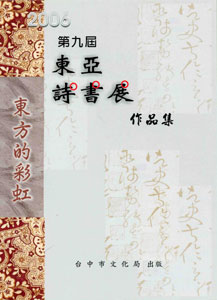 2006
第九屆
東亞
詩書展
作品集
東方的彩虹
台中市文化局 出版